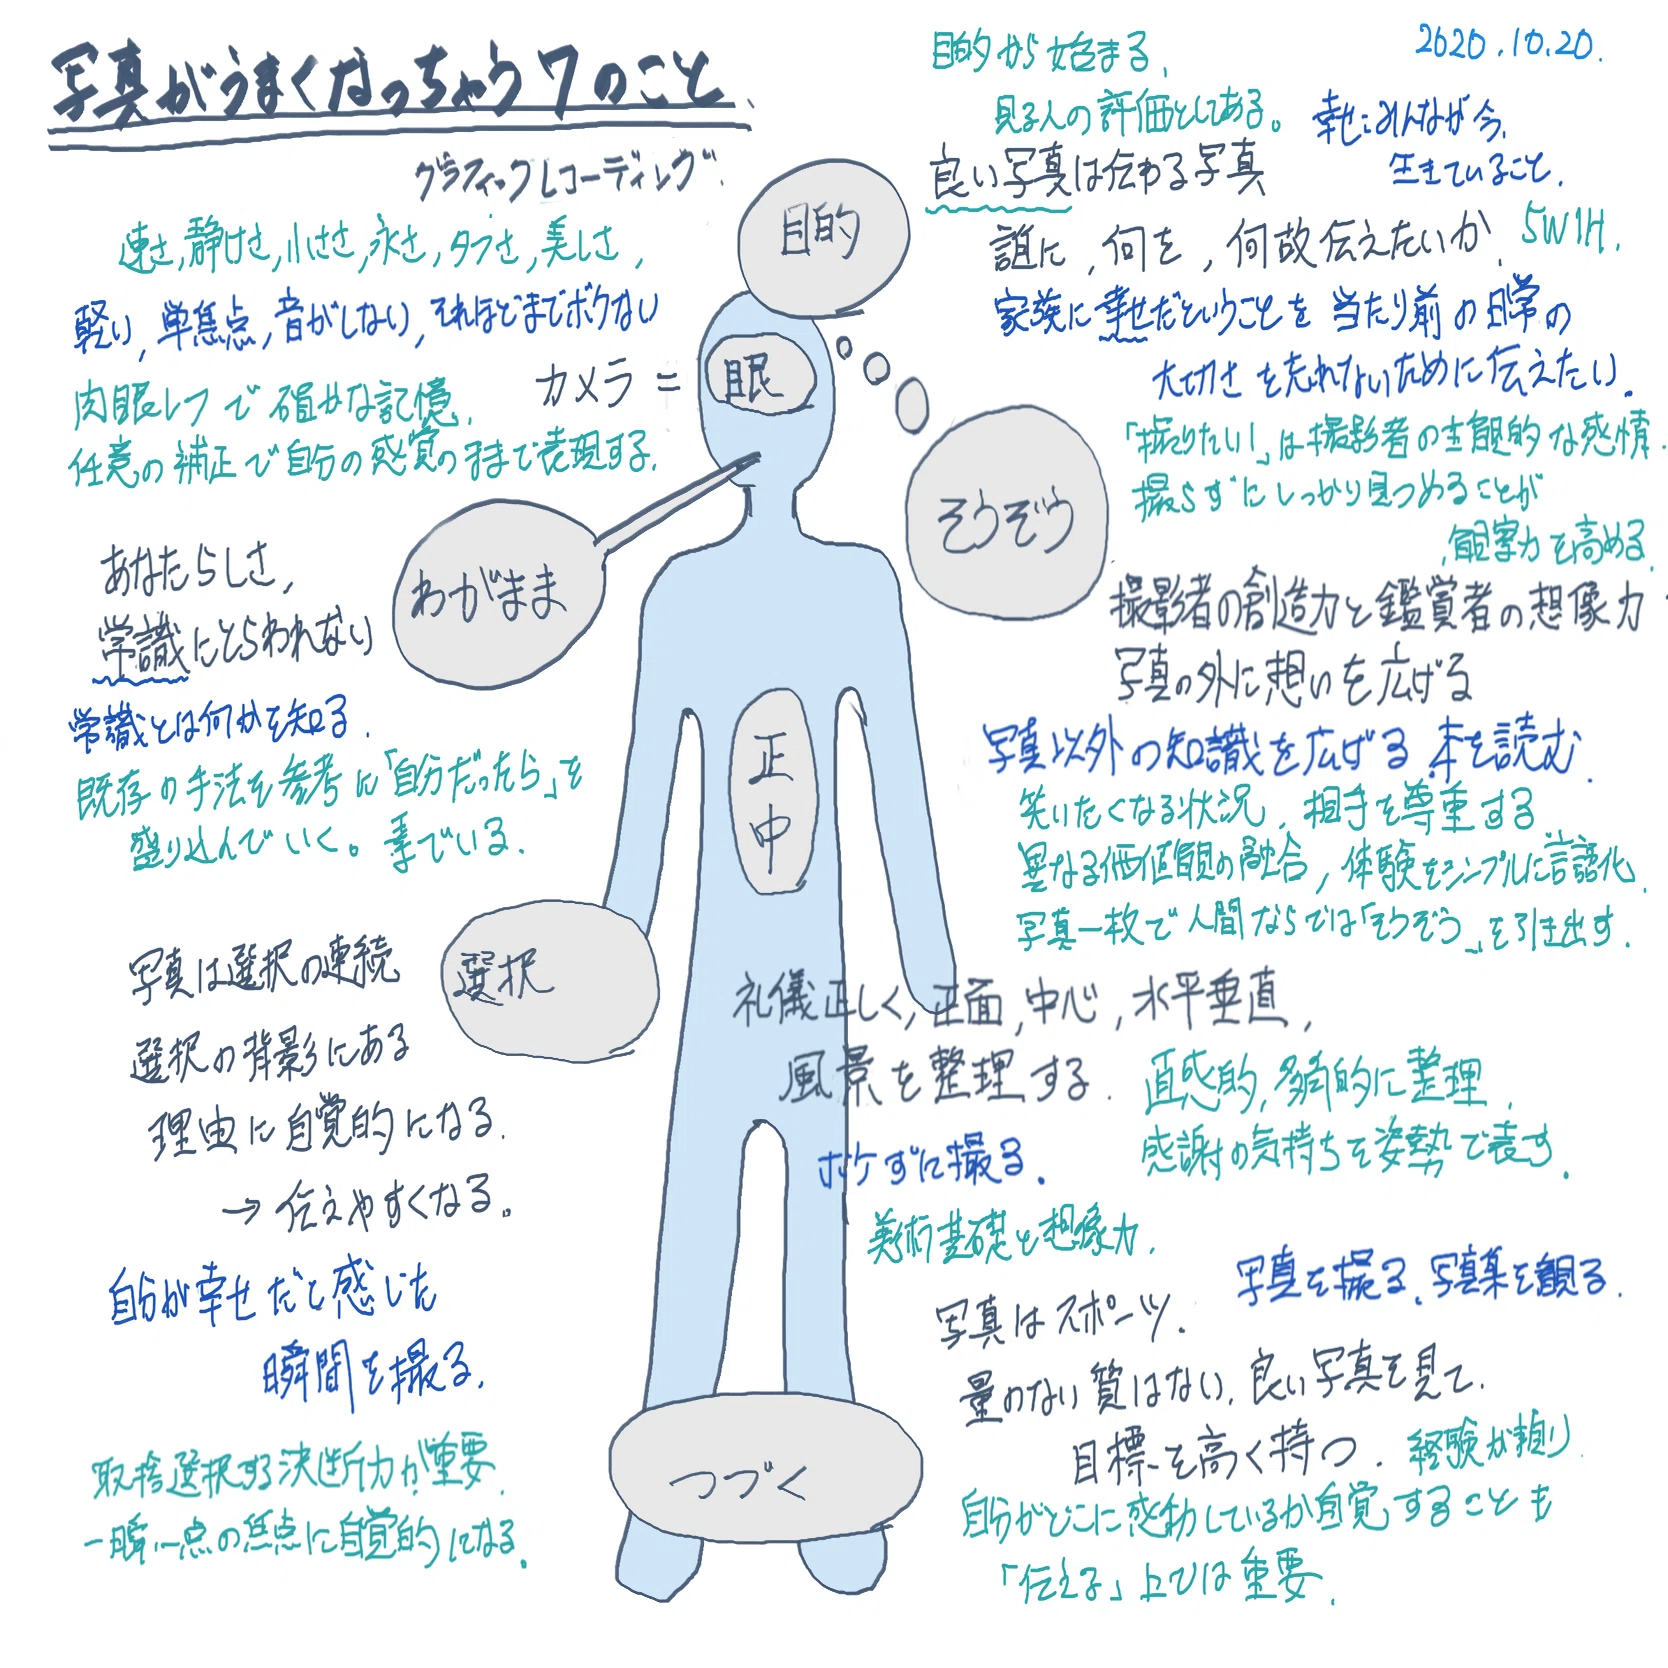 写真がうまくなっちゃう7のこと
グラフィックレコーディング
2020.10.20.
目的
目的から始まる、
見る人の評価としてある。
幸せ=みんなが今、
生きていること、
良い写真は伝わる写真
誰に、何を、何故伝えたいか
5W1H、
家族に幸せだということを当たり前の日常の
大切さを忘れないために伝えたい。
速さ,静けさ,小ささ,永さ,タフさ,美しさ,
軽い,単焦点,音がしない,それほどまでボケない
肉眼レフで確かな記憶、
任意の補正で自分の感覚のままで表現する、
カメラ=
眼
そうぞう
「撮りたい!」は撮影者の主観的な感情、
撮らずにしっかり見つめることが
観察力を高める
撮影者の創造力と鑑賞者の想像力
写真の外に想いを広げる
写真以外の知識を広げる、本を読む、
笑いたくなる状況、相手を尊重する
異なる価値観の融合,体験をシンプルに言語化、
写真一枚で人間ならでは「そうぞう」を引き出す、
わがまま
あなたらしさ,
常識にとらわれない
常識とは何かを知る、
既存の手法を参考に「自分だったら」を
盛り込んでいく。
正中
礼儀正しく,正面,中心,水平垂直,
風景を整理する、
直感的,多角的に整理、
感謝の気持ちを姿勢で表す、
ボケずに撮る、
美術基礎と想像力、
選択
写真は選択の連続
選択の背影にある
理由に自覚的になる、
→伝えやすくなる。
自分が幸せだと感じた
瞬間を撮る、
取捨選択する決断力が重要、
一瞬一点の焦点に自覚的になる、
つづく
写真はスポーツ、
写真を撮る、写真集を観る、
量のない質はない、良い写真を見て、
目標を高く持つ、
経験が頼り、
自分がどこに感動しているか自覚することも
「伝える」上では重要、